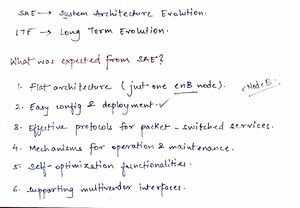 SAE → System Architecture Evolution.
LTE → Long Term Evolution.
What was expected from SAE?
1. Flat architecture (just one enB node). eNodeB.
2. Easy config & deployment.
3. Effective protocols for packet-switched services.
4. Mechanisms for operation & maintenance.
5. Self-optimization functionalities.
6. Supporting multivendor interfaces.